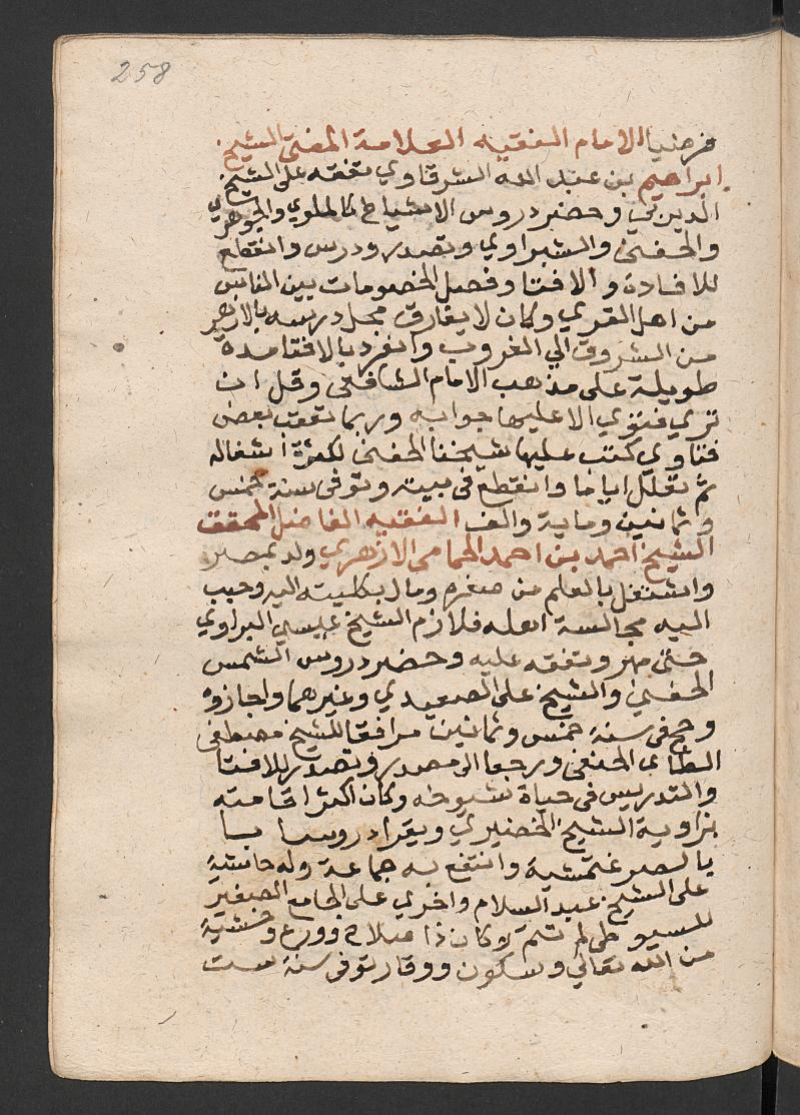 258
فرضيا الامام الفقيه العلامة المفتي الشيخ
ابراهيم بن عبد الله الشرقاوي تفقه على الشيخ
الديربي وحضر دروس الاشياخ كالملوي والجوهري
والحفني والشبراوي وتصدر ودرس وانقطع
للافادة والافتا وفصل الخصومات بين الناس
من اهل القري وكان لا يفارق محل درسه بالازهر
من الشروق الي الغروب وانفرد بالافتا مدة
طويلة على مذهب الامام الشافعي وقل ان
تري فتوي الا عليها جوابه وربما تعقب بعض
فتاوي كتب عليها شيخنا الحفني لكثرة اشغاله
ثم تعلل اياما وانقطع في بيته وتوفي سنة خمس
وثمانين وماية والف الفقيه الفاضل المحقق
الشيخ احمد بن احمد الحمامي الازهري ولد بمصر
واشتغل بالعلم من صغره ومال بكليته اليه وحبب
اليه مجالسة اهله فلازم الشيخ عيسي البراوي
حتى مهر وتفقه عليه وحضر دروس الشمس
الحفني والشيخ على الصعيدي وغيرهما واجازوه
وحج في سنة خمس وثمانين مرافقا للشيخ مصطفى
الطاي الحنفي ورجعا الى مصر وتصدر للافتا
والتدريس في حياة شيوخه وكان اكثر اقامته
بزاوية الشيخ الخضيري ويقرا دروسا با
بالصرغتمشية وانتفع به جماعة وله حاشية
على الشيخ عبد السلام واخري على الجامع الصغير
للسيوطي لم تتم وكان ذا صلاح وورع وخشية
من الله تعالي وسكون ووقار توفي سنة ست